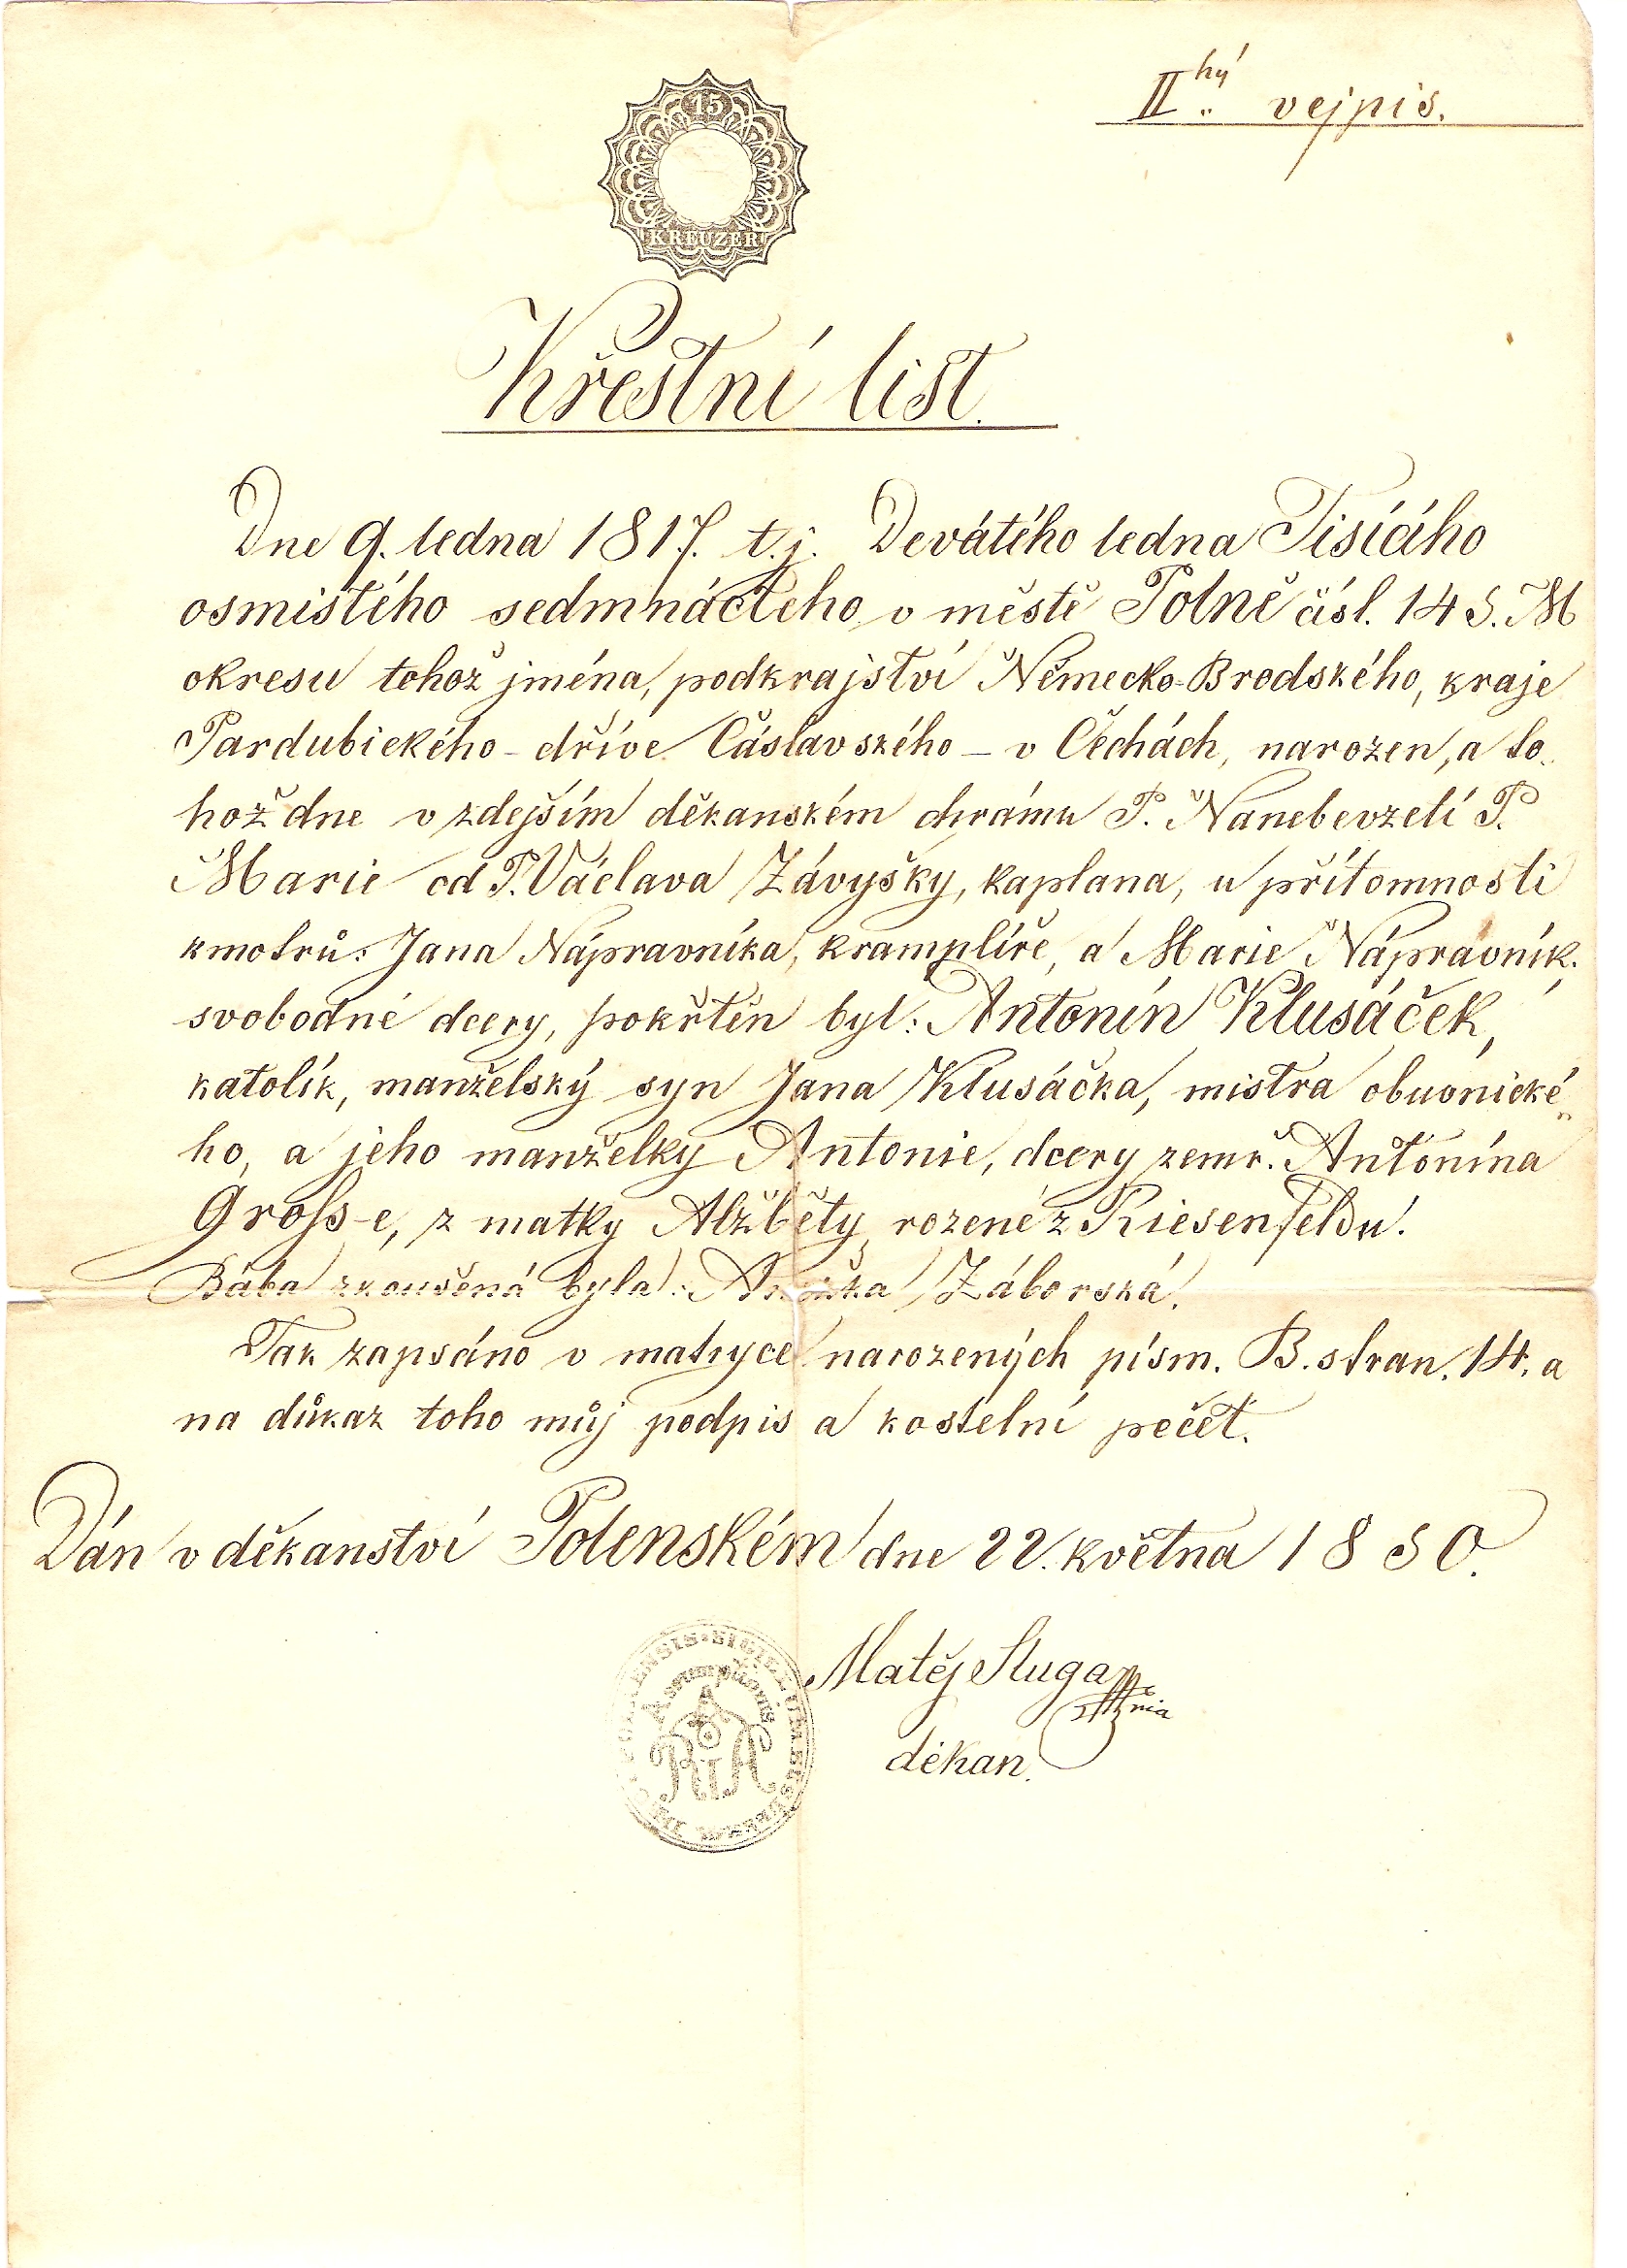 IIhý vejpis.
15
KREUZER
Křestní list.
Dne 9. ledna 1817. t.j. Devátého ledna Tisícího
osmistého sedmnáctého, v městě Polně čísl. 145. M
okresu tohož jména, podkrajství Německo-Brodského, kraje
Pardubického - dříve Čáslavského - v Čechách, narozen, a to-
hož dne v zdejším děkanském chrámu P. Nanebevzetí P.
Marie od P. Václava Závyšky, kaplana, u přítomnosti
kmotrů: Jana Nápravníka, kramplíře, a Marie Nápravník.
svobodné dcery, pokřtěn byl: Antonín Klusáček,
katolík, manželský syn Jana Klusáčka, mistra obuvnické-
ho, a jeho manželky Antonie, dcery zemř. Antonína
Groſs-e, z matky Alžběty, rozené z Riesenfeldu.
Bába zkoušená byla: Anežka Záborská.
Tak zapsáno v matryce narozených písm. B. stran. 14. a
na důkaz toho můj podpis a kostelní pečeť.
Dán v děkanství Polenském dne 22. května 1850.
Matěj Sluga
děkan.